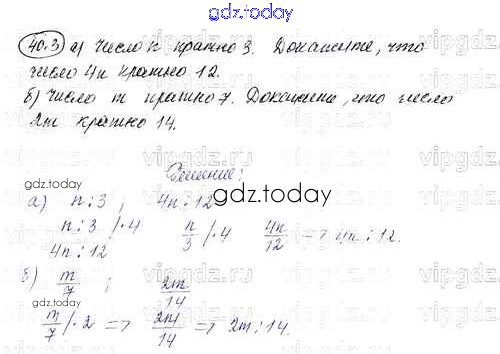 gdz.today
40.3 а) Число n кратно 3. Докажите, что
число 4n кратно 12.
б) Число m кратно 7. Докажите, что число
2m кратно 14.
Решение:
gdz.today
а) n⋮3, 4n⋮12
gdz.today
n⋮3 /·4 n/3 /·4 4n/12 => 4n⋮12.
4n⋮12
б) m/7 ; 2m/14
gdz.today
m/7 /·2 => 2m/14 => 2m⋮14.